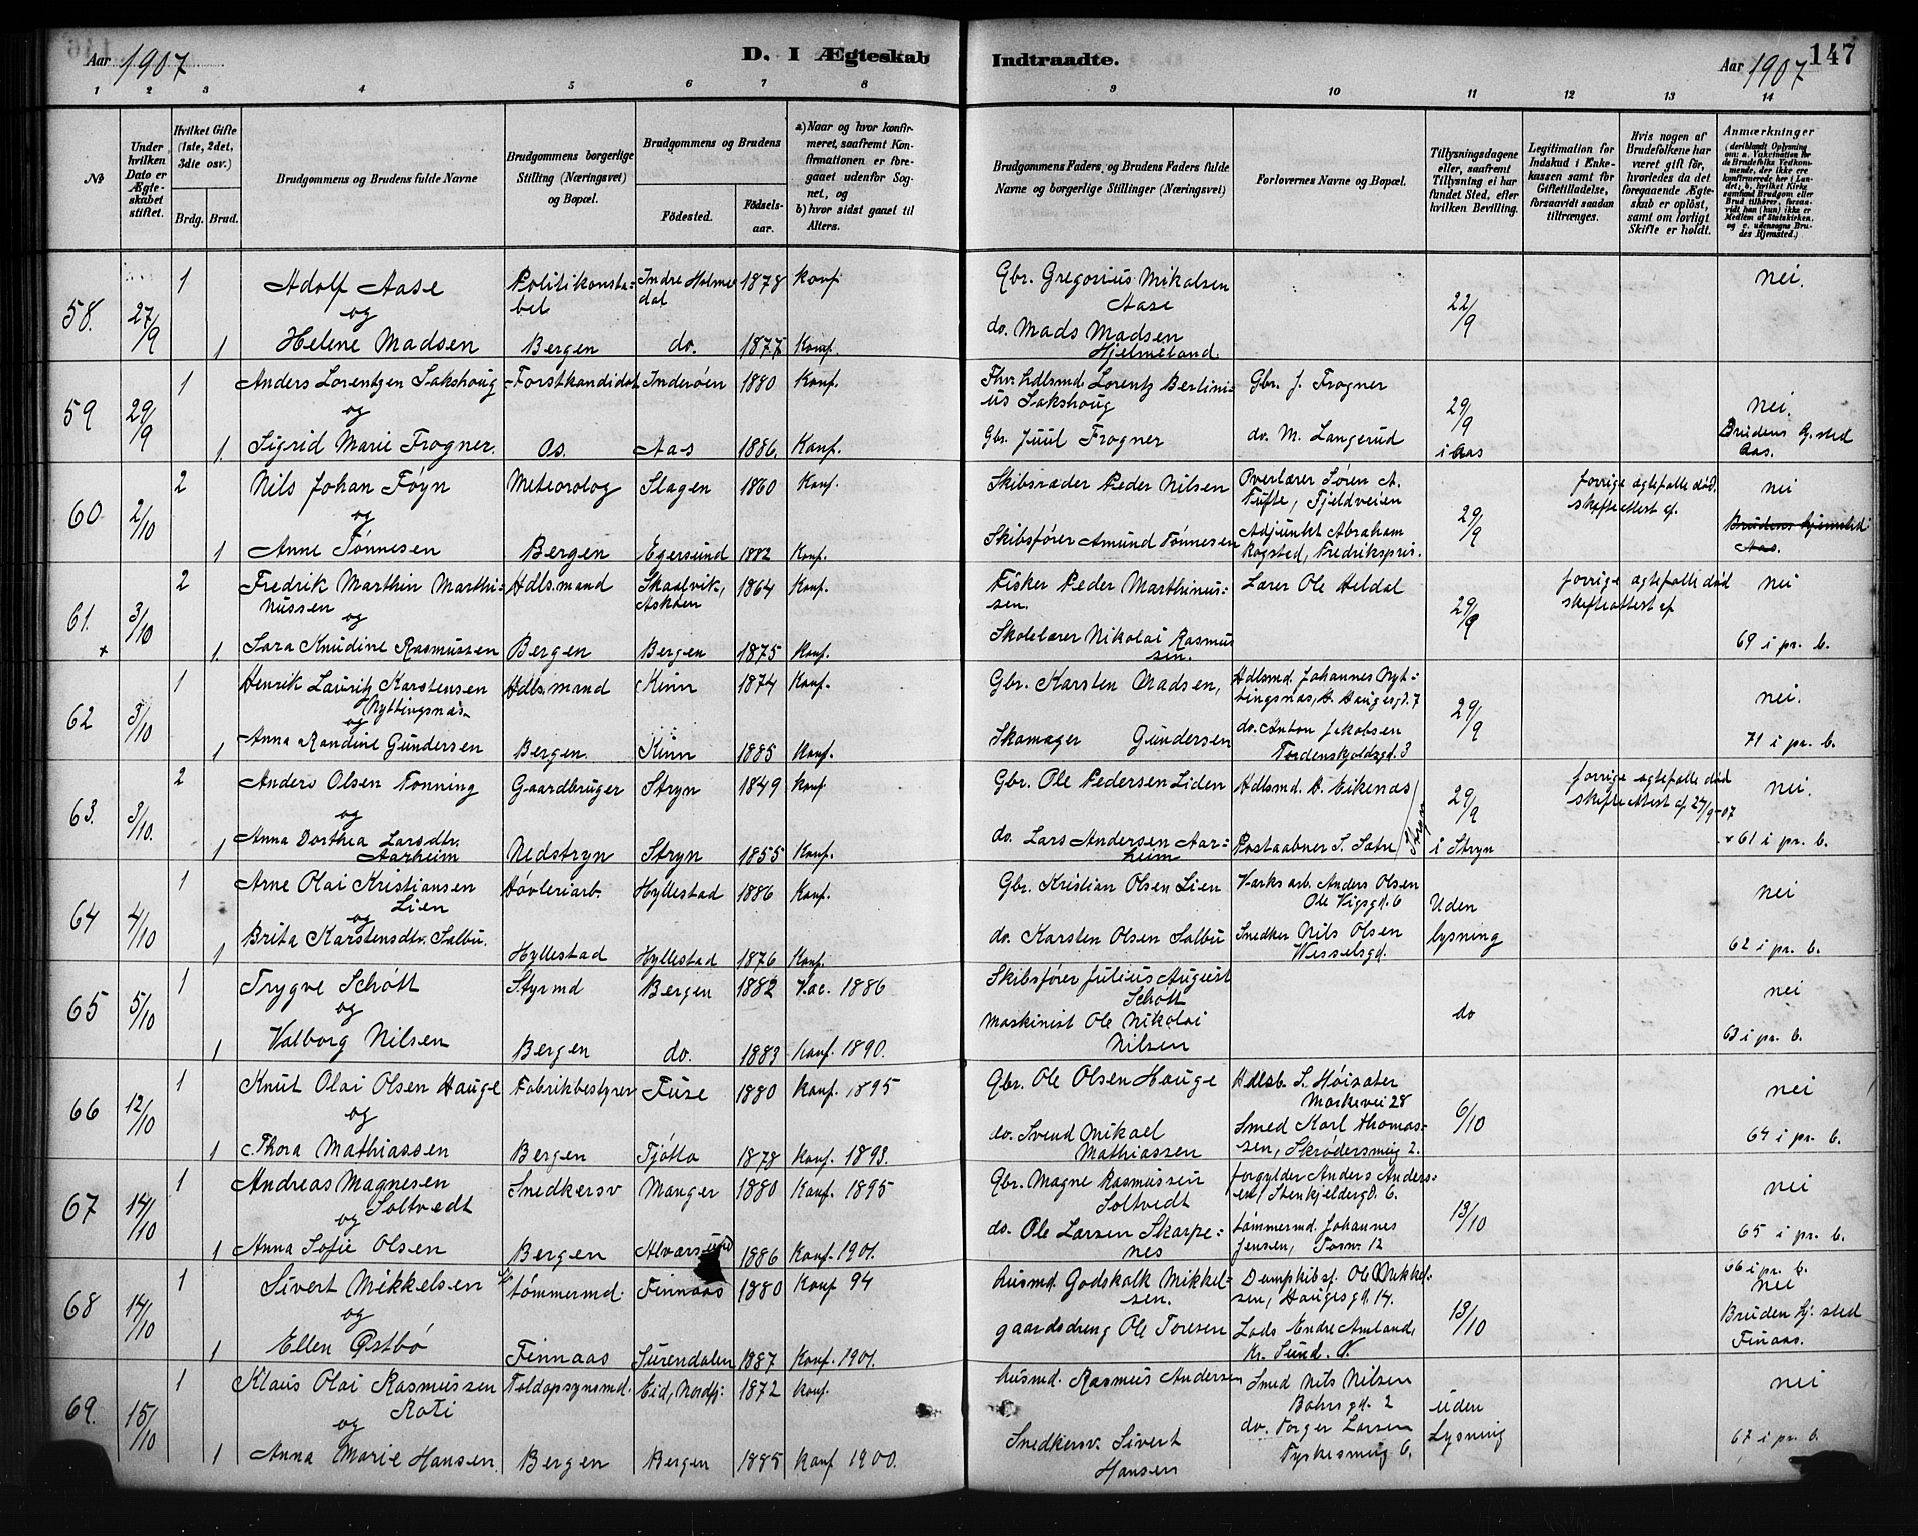 Aar 1907
D. I Ægteskab Indtraadte.
Aar 1907
147
1 2 3 4 5 6 7 8 9 10 11 12 13 14
№
Under hvilken Dato er Ægteskabet stiftet.
Hvilket Gifte (1ste, 2det, 3die osv.)
Brdg. Brud.
Brudgommens og Brudens fulde Navne
Brudgommens borgerlige Stilling (Næringsvei) og Bopæl.
Brudgommens og Brudens
Fødested.
Fødselsaar.
a) Naar og hvor konfirmeret, saafremt Konfirmationen er foregaaet udenfor Sognet, og
b) hvor sidst gaaet til Alters.
Brudgommens Faders og Brudens Faders fulde Navne og borgerlige Stillinger (Næringsvei)
Forlovernes Navne og Bopæl.
Tillysningsdagene eller, saafremt Tillysning ei har fundet Sted, efter hvilken Bevilling.
Legitimation for Indskud i Enkekassen samt for Giftetilladelse, forsaavidt saadan tiltrænges.
Hvis nogen af Brudefolkene har været gift før, hvorledes da det foregaaende Ægteskab er opløst, samt om lovligt Skifte er holdt.
Anmærkninger (deriblandt Oplysning om: a. Vaccination for de Brudefolks Vedkommende, der ikke ere konfirmerede her i Landet; b. hvilket Kirkesamfund Brudgom eller Brud tilhører, forsaavidt han (hun) ikke er Medlem af Statskirken, og c. udensogns Brudes Hjemsted.)
58. 27/9 1 Adolf Aase Politikonsta- Indre Holme- 1878 Konf Gbr. Gregorius Mikalsen nei.
og bel dal Aase 22/9
1 Helene Madsen Bergen do. 1877 Konf. do. Mads Madsen
Hjelmeland.
59 29/9 1 Anders Lorentzen Sakshoug Forstkandidat Inderøen 1880 Konf. Fhv. Hdlsmd. Lorentz Berlini- Gbr. J. Frogner
og us Sakshoug 29/9 nei.
1. Sigrid Marie Frogner. Os. Aas 1886. Konf. Gbr. Juul Frogner do. M. Langerud i Aas Brudens hj.sted
Aas.
60 2/10 2 Nils Johan Føyn Meteorolog Slagen 1860 Konf Skibsreder Peder Nilsen Overlærer Søren A. forrige ægtefælle død. nei
og Tufte, Fjeldveien 29/9 skifteattest ef.
1 Anne Tønnesen Bergen Egersund 1882 Konf. Skibsfører Amund Tønnesen Adjunkt Abraham Brudens hjemsted
Rogsted, Fredrikspris. Aas.
61 3/10 2 Fredrik Marthin Marthi- Hdlsmand Skaalvik, 1864 Konf. Fisker Peder Marthinus- Lærer Ole Heldal forrige ægtefælle død nei
nussen Askøen sen. 29/9 skifteattest ef
og
+ 1. Sara Knudine Rasmussen Bergen Bergen 1875 Konf. Skolelærer Nikolai Rasmus 69 i pr. b.
sen.
62 3/10 1 Henrik Lauritz Karstensen Hdlsmand Kinn 1874 Konf. Gbr. Karsten Madsen, Hdlsmd. Johannes Nyt- nei.
Nyttingsnæs tingsnæs, H. Haugesgd. 7 29/9
og
1 Anna Randine Gundersen Bergen. Kinn 1885 Konf. Skomager Gundersen do. Anton Jakobsen 71 i pr. b.
Tordenskjoldsgd. 3
63. 3/10. 2 Anders Olsen Tonning Gaardbruger Stryn 1849 Konf Gbr. Ole Pedersen Liden Hdlsmd. A. Eikenæs forrige ægtefælle død nei.
og Stryn 29/9 skifteattest ef 27/9-07
1 Anna Dorthea Larsdtr. Nedstryn Stryn 1855 Konf. do. Lars Andersen Aar- Postaabner S. Sætre i Stryn + 61 i pr. b.
Aarheim heim
64 4/10 1 Arne Olai Kristiansen Høvleriarb. Hyllestad 1886 Konf. Gbr. Kristian Olsen Lien Værksarb. Anders Olsen nei
Lien Ole Vigsgd. 6 Uden
og
1 Brita Karstensdtr. Salbu. Hyllestad Hyllestad 1876 Konf. do. Karsten Olsen Salbu Snedker Nils Olsen lysning 62 i pr. b.
Wesselsgd.
65 5/10 1 Trygve Schøtt Styrmd Bergen 1882 Vac. 1886 Skibsfører Julius August nei
og Schøtt do
1 Valborg Nilsen Bergen do. 1883 Konf. 1890. Maskinist Ole Nikolai 63 i pr. b.
Nilsen
66 12/10 1 Knut Olai Olsen Hauge Fabrikbestyrer Fuse 1880 Konf. 1895 Gbr. Ole Olsen Hauge Hdlsb. S. Høisæter nei
og Markevei 28 6/10
1 Thora Mathiassen Bergen Tjøtta 1878 Konf. 1893. do. Svend Mikael Smed Karl Thomas- 64 i pr. b.
Mathiassen sen, Skrødersmug 2.
67 14/10 1 Andreas Magnesen Snedkersv Manger 1880 Konf. 1895 Gbr. Magne Rasmussen forgylder Anders Anders- nei
Soltvedt Soltvedt sen, Stenkjeldergd. 6. 13/10
og
1 Anna Sofie Olsen Bergen Alversund 1886 Konf. 1901. do. Ole Larsen Skarpe- tømmermd. Johannes 65 i pr. b.
nes Jensen, Torsv. 12
68 14/10 1 Sivert Mikkelsen tømmermd. Finnaas 1880 Konf 94 husmd. Godskalk Mikkel- Dampskibsf. Ole Mikkel- 66 i pr. b.
og sen. sen, Haugesgd. 14. 13/10 nei
1 Ellen Østbø Finnaas Surendalen 1887 Konf. 1901. gaardsdreng Ole Toresen Lods Endre Amland, Bruden hj.sted
Kr. Sund. N. Finaas.
69. 15/10 1 Klaus Olai Rasmussen Toldopsynsmd. Eid, Nordfj: 1872 Konf. husmd. Rasmus Andersen Smed Nils Nilsen nei
Roti Bohrsgd. 2 uden
og
1 Anna Marie Hansen. Bergen Bergen 1885 Konf 1900. Snedkersv. Sivert do. Torger Larsen Lysning 67 i pr. b.
Hansen Tyskesmug 6.